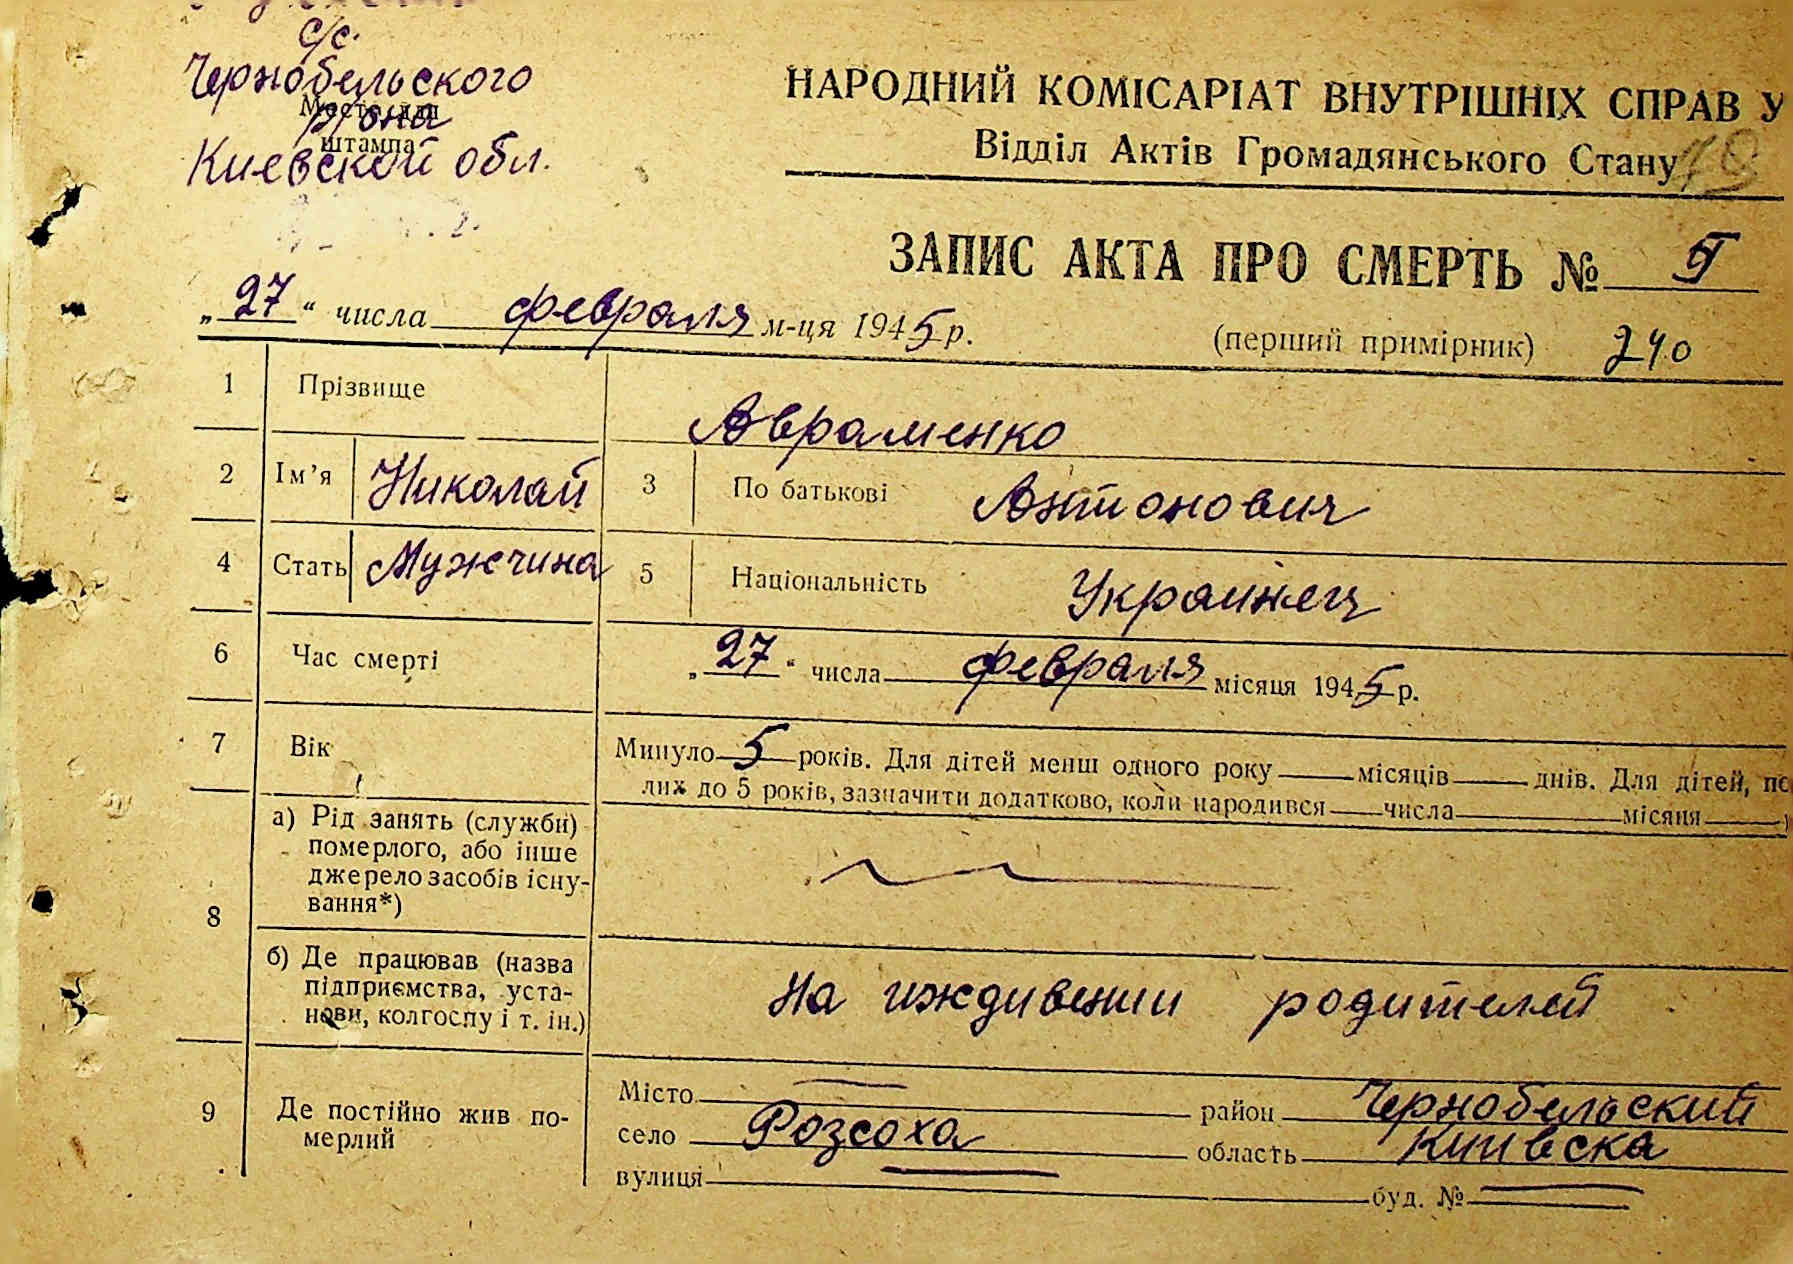 с/с.
Чернобельского
Место для
р/она
штампа
Киевской обл.
НАРОДНИЙ КОМІСАРІАТ ВНУТРІШНІХ СПРАВ У
Відділ Актів Громадянського Стану
ЗАПИС АКТА ПРО СМЕРТЬ № 5
„27“ числа февраля м-ця 1945 р.
(перший примірник) 240
1 Прізвище Авраменко
2 Ім’я Николай 3 По батькові Антонович
4 Стать Мужчина 5 Національність Украинец
6 Час смерті „27“ числа февраля місяця 1945 р.
7 Вік Минуло 5 років. Для дітей менш одного року місяців днів. Для дітей, по
лих до 5 років, зазначити додатково, коли народився числа місяця
8 а) Рід занять (служби)
померлого, або інше
джерело засобів існу-
вання*)
б) Де працював (назва
підприємства, уста-
нови, колгоспу і т. ін.)
На иждивении родителей
9 Де постійно жив по-
мерлий
Місто район Чернобельский
село Розсоха область Киівска
вулиця буд. №